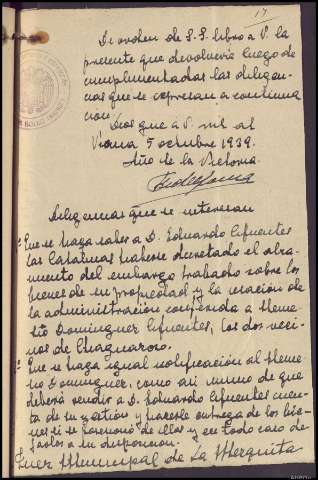 17
De orden de S.S. libro a V. la
presente que devolverá luego de
cumplimentadas las diligen-
cias que se expresan a continua
ción.
Dios gue a V. m. a.
Viana 5 octubre 1939.
Año de la Victoria.
Diligencias que se interesan
Que se haga saber a D. Eduardo Cifuentes
las Casalinas haberse decretado el alza-
miento del embargo trabado sobre los
bienes de su propiedad y la cesación de
la administración conferida a Heme
rio Dominguez Cifuentes, los dos veci
nos de Chaguazoso.
Que se haga igual notificación al Heme
rio Dominguez, como asi mismo de que
deberá rendir a D. Eduardo Cifuentes cuen
ta de su gestión y hacerle entrega de los bie-
nes si se posesionó de ellos y en todo caso de
jarlos a su disposición.
Juez Municipal de La Mezquita